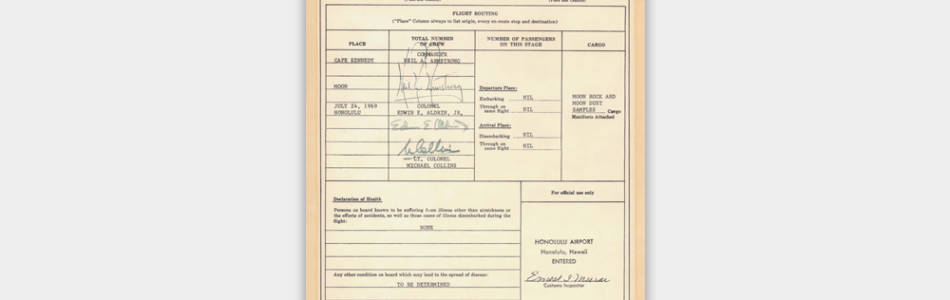 FLIGHT ROUTING
("Place" Column always to list origin, every en-route stop and destination)
PLACE
TOTAL NUMBER
OF CREW
NUMBER OF PASSENGERS
ON THIS STAGE
CARGO
CAPE KENNEDY
COMMANDER
NEIL A. ARMSTRONG
MOON
JULY 24, 1969
HONOLULU
COLONEL
EDWIN E. ALDRIN, JR.
LT. COLONEL
MICHAEL COLLINS
Departure Place:
Embarking NIL
Through on
same flight NIL
Arrival Place:
Disembarking NIL
Through on
same flight NIL
MOON ROCK AND
MOON DUST
SAMPLES Cargo
Manifests Attached
Declaration of Health
Persons on board known to be suffering from illness other than airsickness or
the effects of accidents, as well as those cases of illness disembarked during the
flight:
NONE
Any other condition on board which may lead to the spread of disease:
TO BE DETERMINED
For official use only
HONOLULU AIRPORT
Honolulu, Hawaii
ENTERED
Customs Inspector